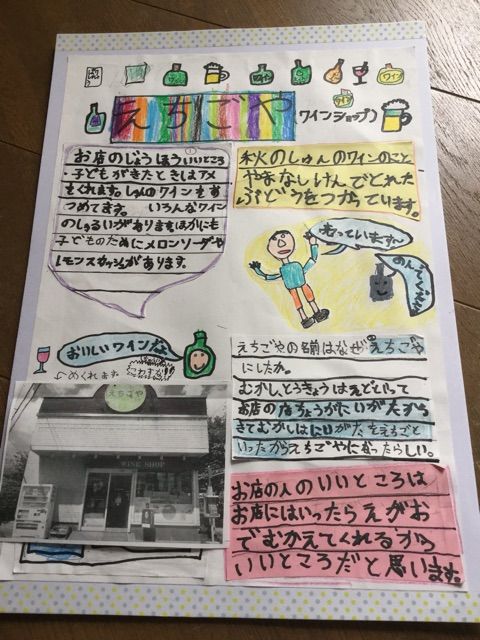 ワイン
ワイン
えちごや
(ワインショップ)
お店のじょうほう①いいところ
・子どもがきたときはアメ
をくれます。しゅんのワインをあ
つめてます。いろんなワイン
のしゅるいがありますほかにも
子どものためにメロンソーダや
レモンスカッシュがあります。
秋のしゅんのワインのこと
やまなしけんでとれた
ぶどうをつかっています。
まっています〜
のんでください
おいしいワインだ
よ
めくれます
えちごや
WINE SHOP
えちごやの名前はなぜえちごや
にしたか。
むかし、とうきょうはえどといって
お店の店ちょうがにいがたから
きてむかしはにいがたをえちごと
いったからえちごやになったらしい。
お店の人のいいところは
お店にはいったらえがお
でむかえてくれるから
いいところだと思います。